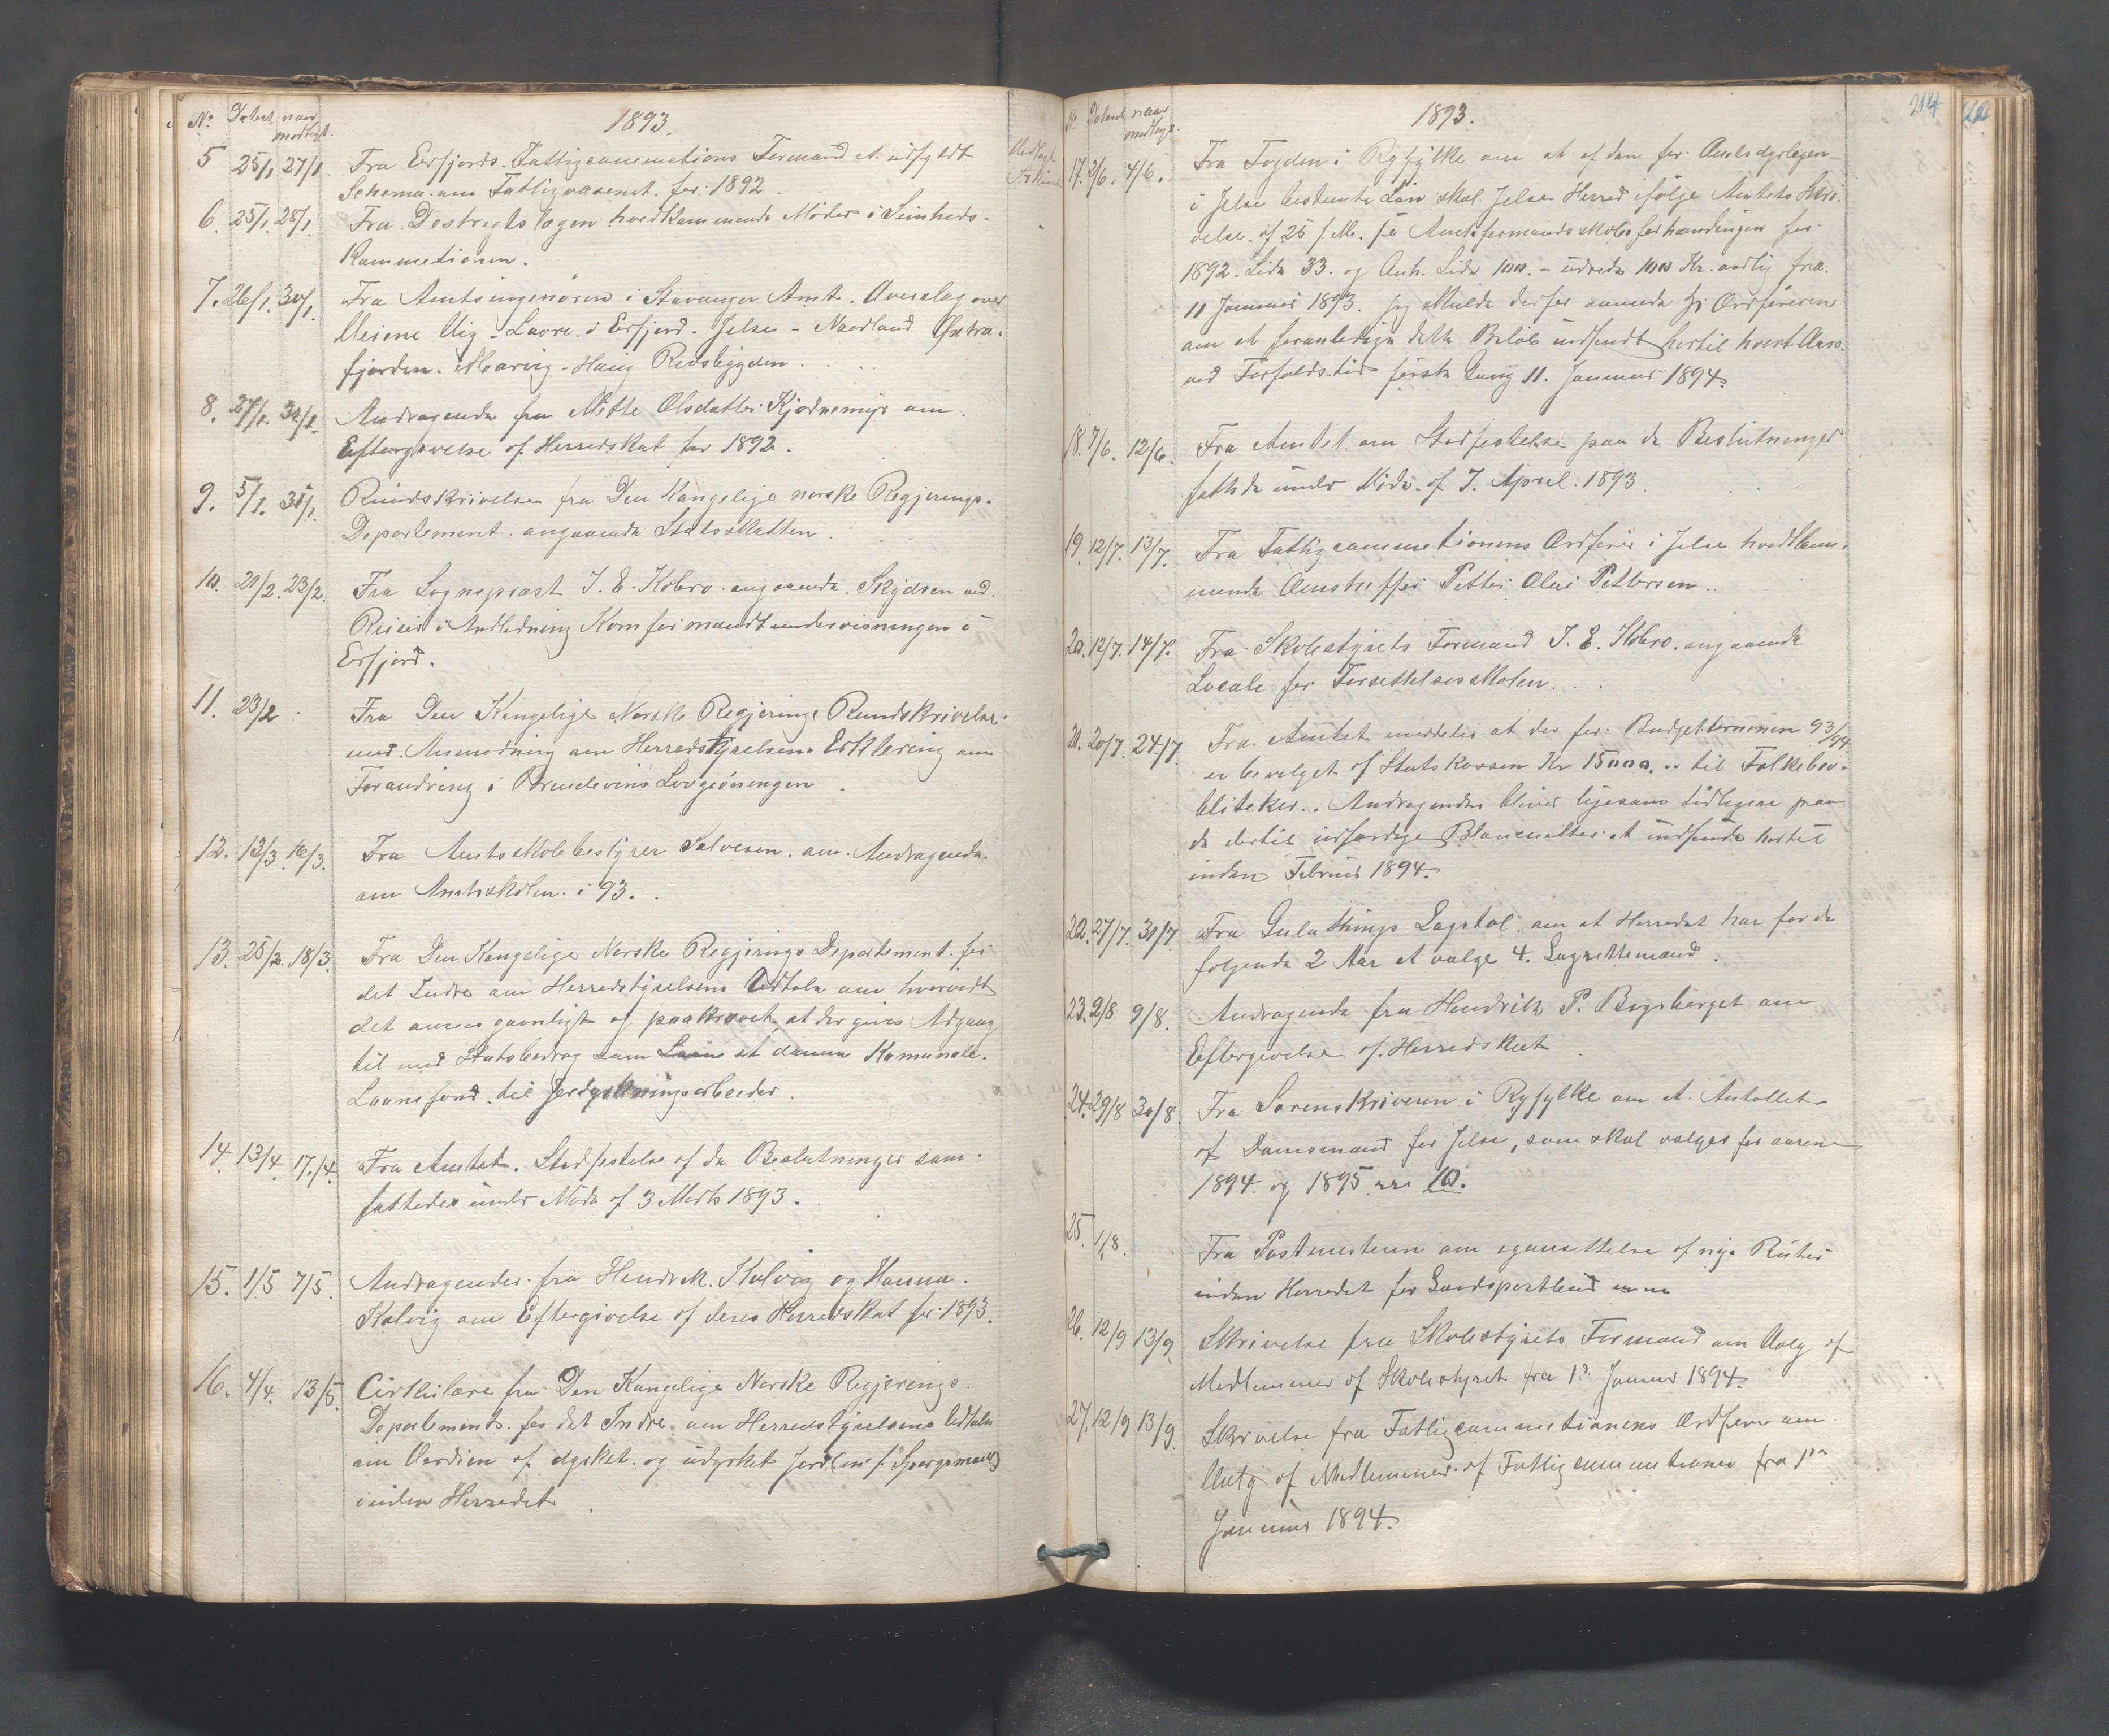 No. Datert naar modtagt. 1893.
5 25/1 27/1 Fra Erfjords Fattigcommetions Formand et udfyldt
Schema om Fattigvæsenet for 1892
6. 25/1. 28/1. Fra Destrigtslogen hvedkammende Møder i Seinheds-
Kammetionen.
7. 26/1. 30/1. Fra Amtsingenøren i Stavanger Amt. Overslag over
Veiene Vig - Lavre i Erfjord. Jelse - Naadland Østra-
fjorden. Maarvig - Hauig
8. 27/1. 30/1. Andragende fra Mette Olsdatter Kjødnemyr om
Eftergivelse af Herredskat for 1892.
9. 5/1. 31/1. Rundskrivelse fra Den Kongelige norske Regjerings-
Departement angaaende Statsskatten.
10. 21/2. 23/2. Fra Sognepræst I. E. Kobro angaaende Skydsen ved
Reiser i Andledning Komfermandtundervisningen i
Erfjord.
11. 23/2 Fra Den Kongelige Norske Regjerings Rundskrivelse
med Anmodning om Herredstyrelsens Erklæring om
Forandring i Brendevins Lovgivningen
12. 13/3. 16/3. Fra Amtsskolebestyrer Salvesen. om Andragende
om Amtsskolen i 93.
13. 25/2. 18/3. Fra Den Kongelige Norske Regjerings Departement for
det Indre om Herredstyrelsens Udtale om hvorvidt
det anses gavnligt og paakrævet at der gives Adgang
til med Statsbedrag som at danne Kamunale
Laanefond til Jordyrkningsarbeider.
14. 13/4. 17/4. Fra Amtet. Stadfestelse af de Beslutninger som
fattedes under Møde af 3 Marts 1893.
15. 1/5 7/5. Andragender fra Hendrek Kalvig og Hanna
Kalvig om Eftergivelse af deres Herredskat for 1893.
16. 4/4. 13/5. Cirkulære fra Den Kongelige Norske Regjerings
Departement for det Indre om Herredstyrelsens Udtale
om Værdien af dyrket og udyrket Jord
inden Herredet.
No. Datert naar modtagt. 1893. 214
17. 2/6. 4/6. Fra Fogden i Ryfylke om at af den for Amtsdyrlegen
i Jelse bestemte Løn skal Jelse Herred ifølge Amtets Skri-
velse af 25 f. M. Amtsformandsskabsforhandlinger for
1892. Side 33. og Anh. Side 100. - udrede 100 Kr. aarlig fra
11 Januar 1893. Jeg skulde derfor anmode Hr Ordføreren
om at foranledige dette Beløb indsendt hertil hvert Aar
ved Forfaldstid første Gang 11. Januar 1894.
18. 7/6. 12/6. Fra Amtet om Stadfestelse paa de Beslutninger
fattede under Møde af 7. April 1893.
19. 12/7. 13/7. Fra Fattigcommetionens Ordfører i Jelse hvedkam-
mende Petter Olai Pettersen.
20. 12/7. 14/7. Fra Skolestyrets Formand I. E. Kobro angaaende
Locale for Forsettelsesskolen.
21. 20/7. 24/7. Fra Amtet meddeles at der for Budgetterminen 93/94
er bevilget af Statskassen Kr 15000. til Folkebib-
bliteker. Andragender bliver ligesom tidligere paa
de dertil udferdige Blanketter at indsende hertil
inden Februar 1894.
22. 27/7. 31/7. Fra Gulathings Lagstol om at Herredet har for de
følgende 2 Aar at valge 4. Lagrettemænd.
23. 2/8 9/8. Andragende fra Hendrik P. Bergsberget om
Eftergivelse af Herredskat
24. 29/8 30/8. Fra Sorenskriveren i Ryfylke om at Antallet
af Domsmænd for Jelse, som skal valges for aarene
1894 og 1895 10.
25. 1/8. Fra Postmesteren om igansettelse af nye Ruter
inden Herredet for Landspostbud
26. 12/9 13/9. Skrivelse fra Skolestyrets Formand om Valg af
Medlemmer af Skolestyret fra 1. Januar 1894.
27. 12/9 13/9. Skrivelse fra Fattigcommetionens Ordfører om
Valg af Medlemmer af Fattigcommetionen fra 1
Januar 1894.